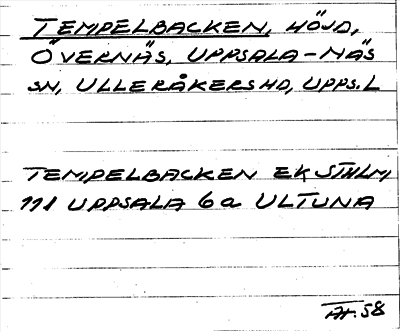 TEMPELBACKEN, HÖJD,
ÖVERNÄS, UPPSALA-NÄS
SN, ULLERÅKERS HD, UPPS. L
TEMPELBACKEN EK STHLM
111 UPPSALA 6a ULTUNA
At. 58